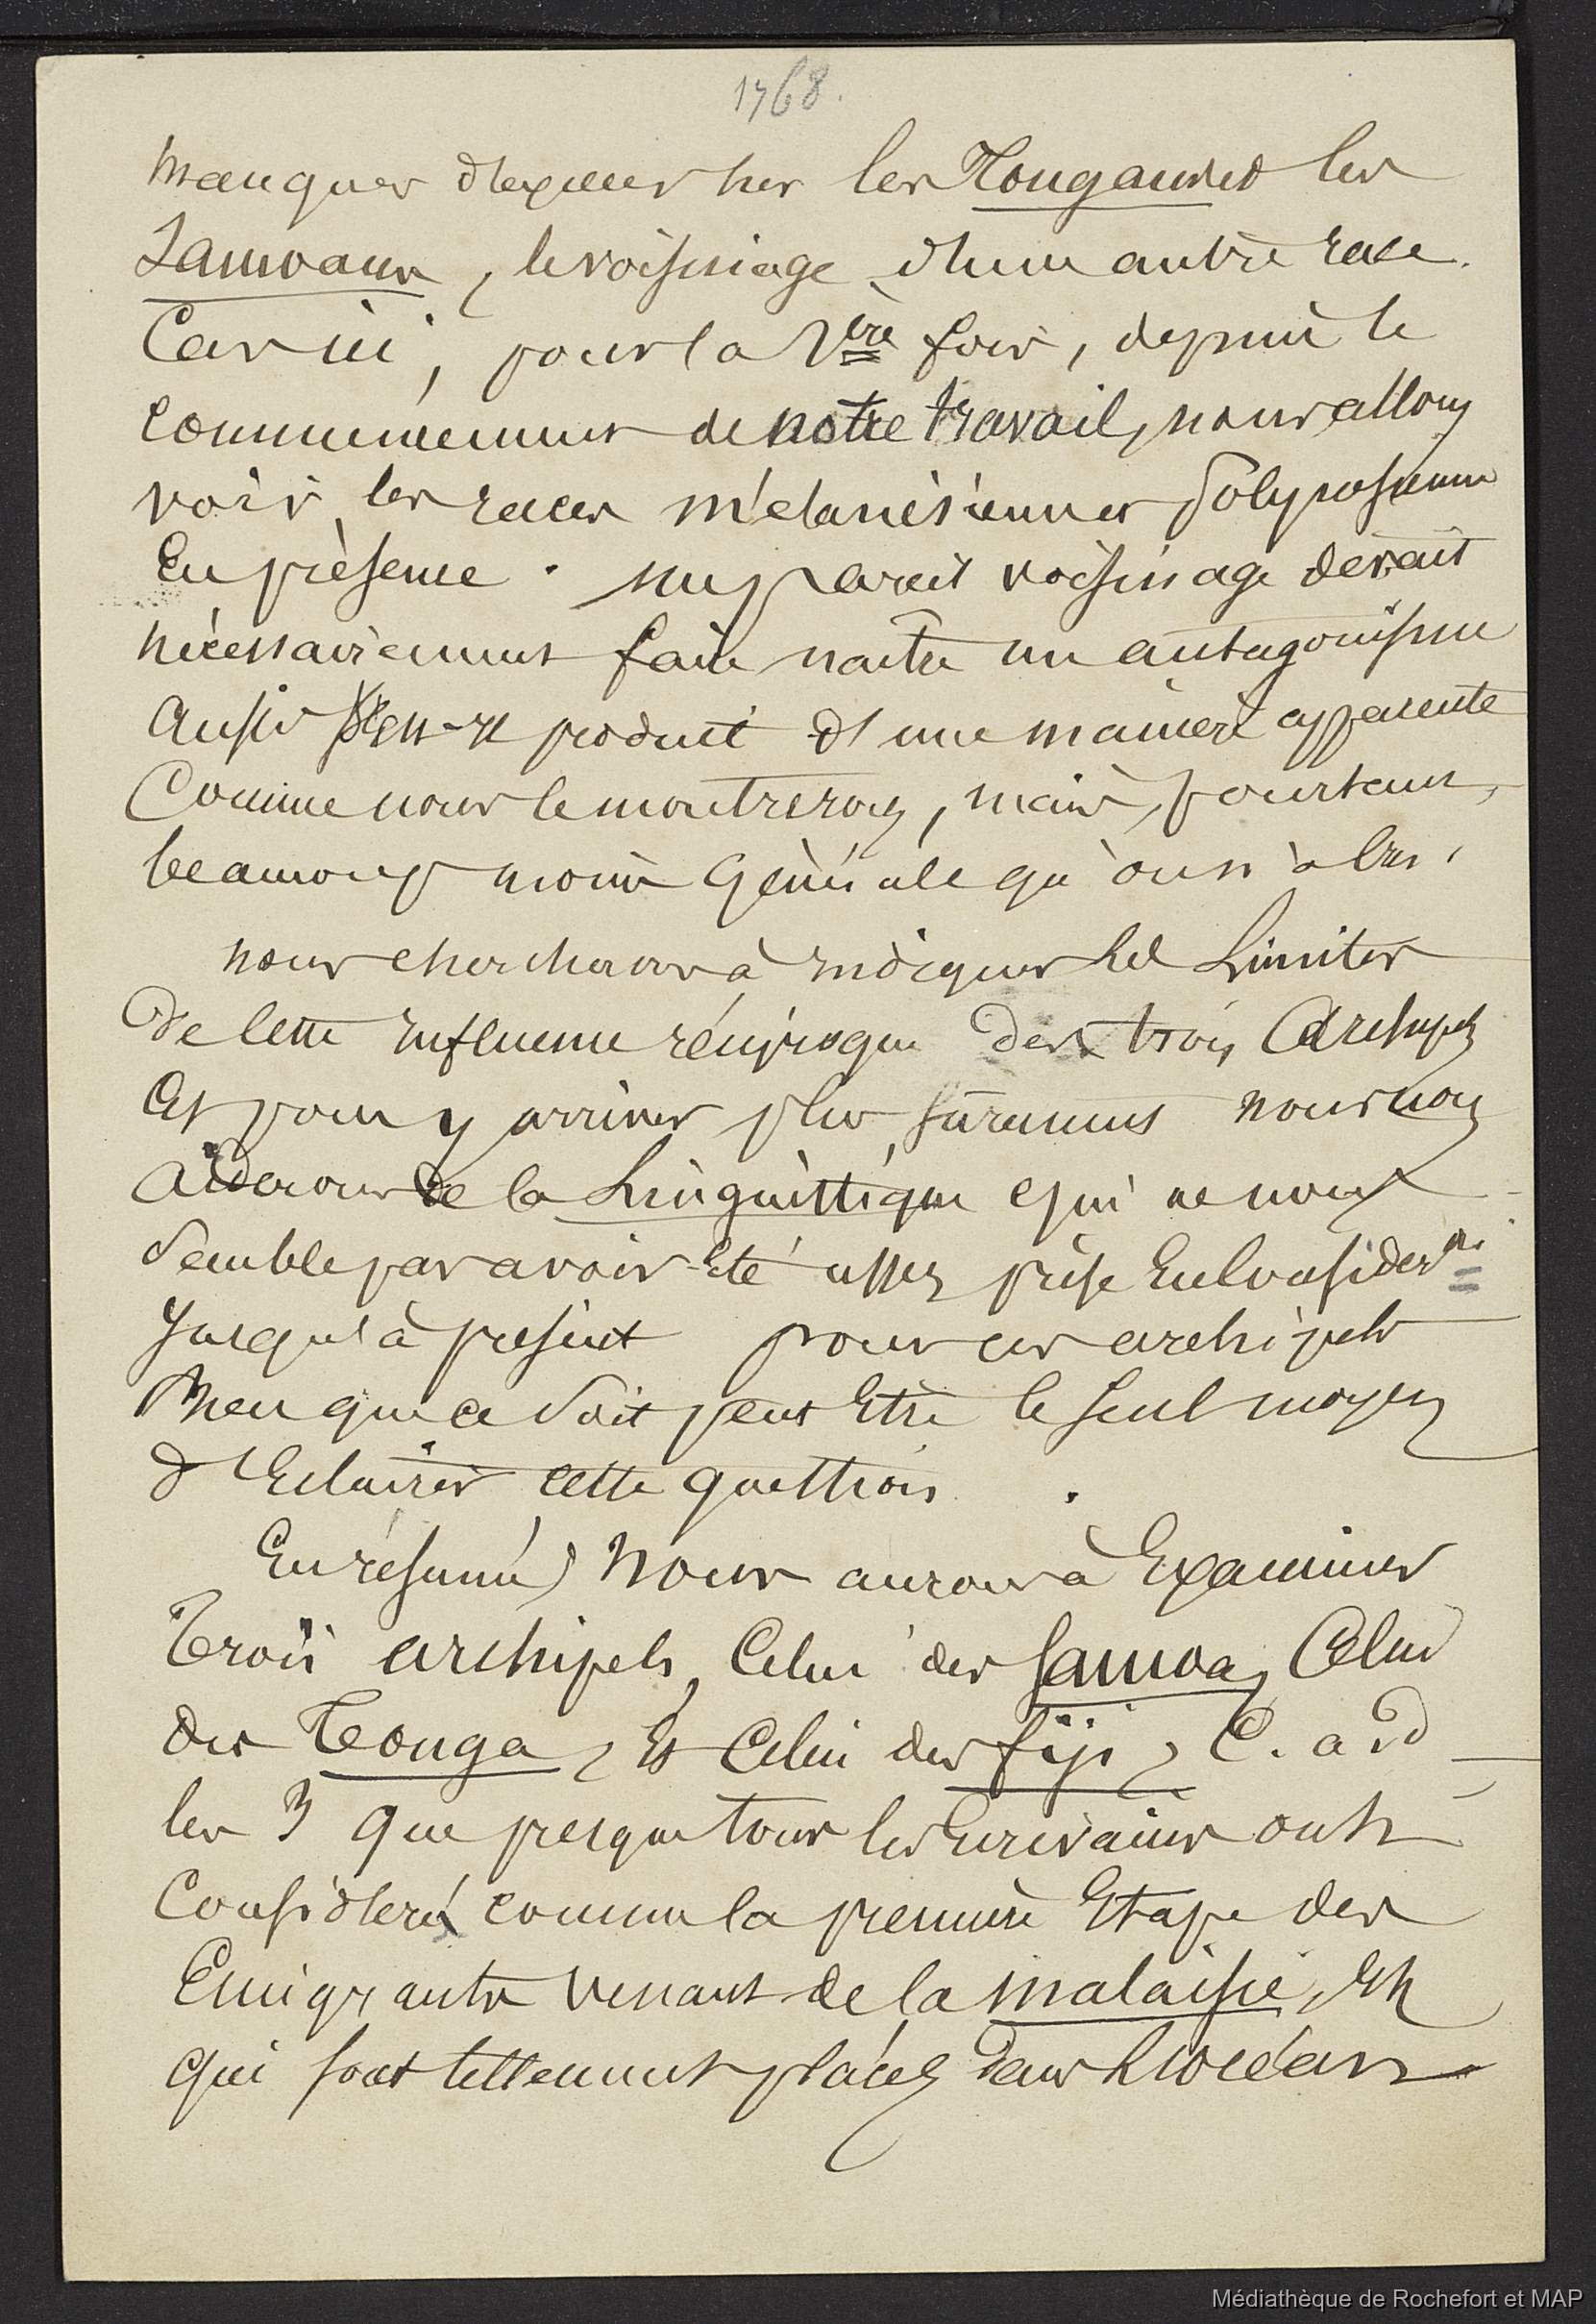 1768.
manquer d'exercer sur les Tongans et les
Samoans, le voisinage d'une autre race.
Car ici, pour la 1ère fois, depuis le
commencement de notre travail, nous allons
voir les races mélanésiennes Polynésienne
En présence. un pareil voisinage devait
nécessairement faire naître un antagonisme
Aussi s'est-il produit d'une manière apparente
Comme nous le montrerons, mais, pourtant,
beaucoup moins générale qu'on
nous chercherons à indiquer les Limites
De cette influence réciproque des trois Archipels
Et pour y arriver plus sûrement nous nous
Aiderons de la Linguistique qui ne nous
Semble pas avoir été assez prise En considéron
Jusqu'à présent pour ces archipels
bien que ce soit peut Etre le seul moyen
d'Eclairer cette question.
En résumé, nous aurons à Examiner
Trois archipels, Celui des Samoa, Celui
des Tonga, Et Celui des fiji, C. a d
les 3 que presque tous les Ecrivains ont
Considéré comme la première Etape des
Emigrants venant de la malaisie, Et
qui sont tellement placés dans l'océan
Médiathèque de Rochefort et MAP